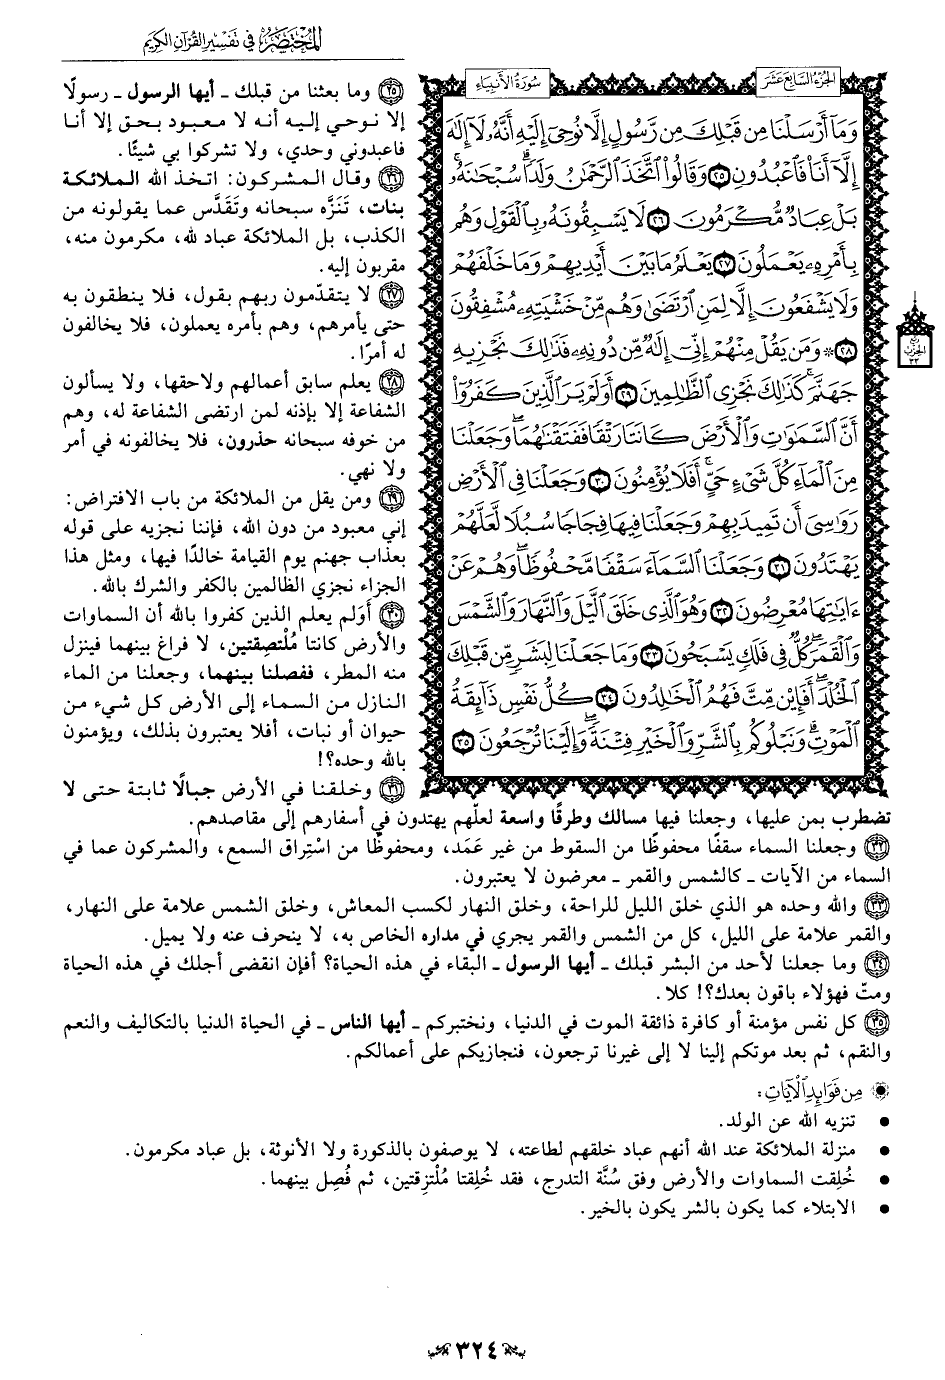 المختصر في تفسير القرآن الكريم
الجزء السابع عشر
سورة الأنبياء
وَمَآ أَرۡسَلۡنَا مِن قَبۡلِكَ مِن رَّسُولٍ إِلَّا نُوحِيٓ إِلَيۡهِ أَنَّهُۥ لَآ إِلَٰهَ
إِلَّآ أَنَا۠ فَٱعۡبُدُونِ ٢٥ وَقَالُواْ ٱتَّخَذَ ٱلرَّحۡمَٰنُ وَلَدٗاۗ سُبۡحَٰنَهُۥۚ
بَلۡ عِبَادٞ مُّكۡرَمُونَ ٢٦ لَا يَسۡبِقُونَهُۥ بِٱلۡقَوۡلِ وَهُم
بِأَمۡرِهِۦ يَعۡمَلُونَ ٢٧ يَعۡلَمُ مَا بَيۡنَ أَيۡدِيهِمۡ وَمَا خَلۡفَهُمۡ
وَلَا يَشۡفَعُونَ إِلَّا لِمَنِ ٱرۡتَضَىٰ وَهُم مِّنۡ خَشۡيَتِهِۦ مُشۡفِقُونَ
٢٨ ۞ وَمَن يَقُلۡ مِنۡهُمۡ إِنِّيٓ إِلَٰهٞ مِّن دُونِهِۦ فَذَٰلِكَ نَجۡزِيهِ
جَهَنَّمَۚ كَذَٰلِكَ نَجۡزِي ٱلظَّٰلِمِينَ ٢٩ أَوَلَمۡ يَرَ ٱلَّذِينَ كَفَرُوٓاْ
أَنَّ ٱلسَّمَٰوَٰتِ وَٱلۡأَرۡضَ كَانَتَا رَتۡقٗا فَفَتَقۡنَٰهُمَاۖ وَجَعَلۡنَا
مِنَ ٱلۡمَآءِ كُلَّ شَيۡءٍ حَيٍّۚ أَفَلَا يُؤۡمِنُونَ ٣٠ وَجَعَلۡنَا فِي ٱلۡأَرۡضِ
رَوَٰسِيَ أَن تَمِيدَ بِهِمۡ وَجَعَلۡنَا فِيهَا فِجَاجٗا سُبُلٗا لَّعَلَّهُمۡ
يَهۡتَدُونَ ٣١ وَجَعَلۡنَا ٱلسَّمَآءَ سَقۡفٗا مَّحۡفُوظٗاۖ وَهُمۡ عَنۡ
ءَايَٰتِهَا مُعۡرِضُونَ ٣٢ وَهُوَ ٱلَّذِي خَلَقَ ٱلَّيۡلَ وَٱلنَّهَارَ وَٱلشَّمۡسَ
وَٱلۡقَمَرَۖ كُلّٞ فِي فَلَكٖ يَسۡبَحُونَ ٣٣ وَمَا جَعَلۡنَا لِبَشَرٖ مِّن قَبۡلِكَ
ٱلۡخُلۡدَۖ أَفَإِيْن مِّتَّ فَهُمُ ٱلۡخَٰلِدُونَ ٣٤ كُلُّ نَفۡسٖ ذَآئِقَةُ
ٱلۡمَوۡتِۗ وَنَبۡلُوكُم بِٱلشَّرِّ وَٱلۡخَيۡرِ فِتۡنَةٗۖ وَإِلَيۡنَا تُرۡجَعُونَ ٣٥
ربع
الحزب
٣٣
٢٥ وما بعثنا من قبلك ـ أيها الرسول ـ رسولًا
إلا نوحي إليه أنه لا معبود بحق إلا أنا
فاعبدوني وحدي، ولا تشركوا بي شيئًا.
٢٦ وقال المشركون: اتخذ الله الملائكة
بنات، تَنَزَّه سبحانه وتَقَدَّس عما يقولونه من
الكذب، بل الملائكة عباد لله، مكرمون منه،
مقربون إليه.
٢٧ لا يتقدّمون ربهم بقول، فلا ينطقون به
حتى يأمرهم، وهم بأمره يعملون، فلا يخالفون
له أمرًا.
٢٨ يعلم سابق أعمالهم ولاحقها، ولا يسألون
الشفاعة إلا بإذنه لمن ارتضى الشفاعة له، وهم
من خوفه سبحانه حذرون، فلا يخالفونه في أمر
ولا نهي.
٢٩ ومن يقل من الملائكة من باب الافتراض:
إني معبود من دون الله، فإننا نجزيه على قوله
بعذاب جهنم يوم القيامة خالدًا فيها، ومثل هذا
الجزاء نجزي الظالمين بالكفر والشرك بالله.
٣٠ أوَلم يعلم الذين كفروا بالله أن السماوات
والأرض كانتا مُلْتصِقتين، لا فراغ بينهما فينزل
منه المطر، ففصلنا بينهما، وجعلنا من الماء
النازل من السماء إلى الأرض كل شيء من
حيوان أو نبات، أفلا يعتبرون بذلك، ويؤمنون
بالله وحده؟!
٣١ وخلقنا في الأرض جبالًا ثابتة حتى لا
تضطرب بمن عليها، وجعلنا فيها مسالك وطرقًا واسعة لعلّهم يهتدون في أسفارهم إلى مقاصدهم.
٣٢ وجعلنا السماء سقفًا محفوظًا من السقوط من غير عَمَد، ومحفوظًا من اسْتِراق السمع، والمشركون عما في
السماء من الآيات ـ كالشمس والقمر ـ معرضون لا يعتبرون.
٣٣ والله وحده هو الذي خلق الليل للراحة، وخلق النهار لكسب المعاش، وخلق الشمس علامة على النهار،
والقمر علامة على الليل، كل من الشمس والقمر يجري في مداره الخاص به، لا ينحرف عنه ولا يميل.
٣٤ وما جعلنا لأحد من البشر قبلك ـ أيها الرسول ـ البقاء في هذه الحياة؟ أفإن انقضى أجلك في هذه الحياة
ومتّ فهؤلاء باقون بعدك؟! كلا.
٣٥ كل نفس مؤمنة أو كافرة ذائقة الموت في الدنيا، ونختبركم ـ أيها الناس ـ في الحياة الدنيا بالتكاليف والنعم
والنقم، ثم بعد موتكم إلينا لا إلى غيرنا ترجعون، فنجازيكم على أعمالكم.
من فوائد الآيات:
• تنزيه الله عن الولد.
• منزلة الملائكة عند الله أنهم عباد خلقهم لطاعته، لا يوصفون بالذكورة ولا الأنوثة، بل عباد مكرمون.
• خُلِقت السماوات والأرض وفق سُنَّة التدرج، فقد خُلِقتا مُلْتزِقتين، ثم فُصِل بينهما.
• الابتلاء كما يكون بالشر يكون بالخير.
٣٢٤